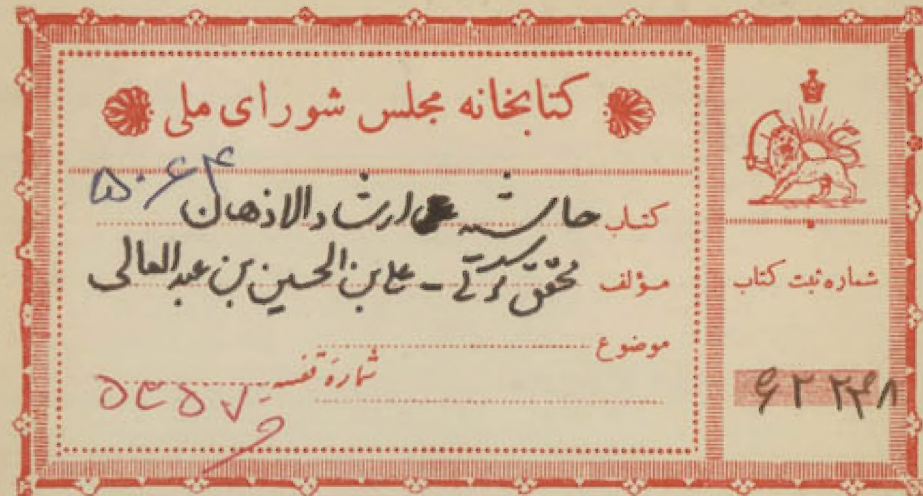 کتابخانه مجلس شورای ملی
۵۰۶۴
کتاب حاشیه ارشاد الاذهان
مؤلف محقق کرکی - علی بن الحسین بن عبدالعالی
موضوع
شمارهٔ قفسه
شماره ثبت کتاب
۶۲۲۴۸